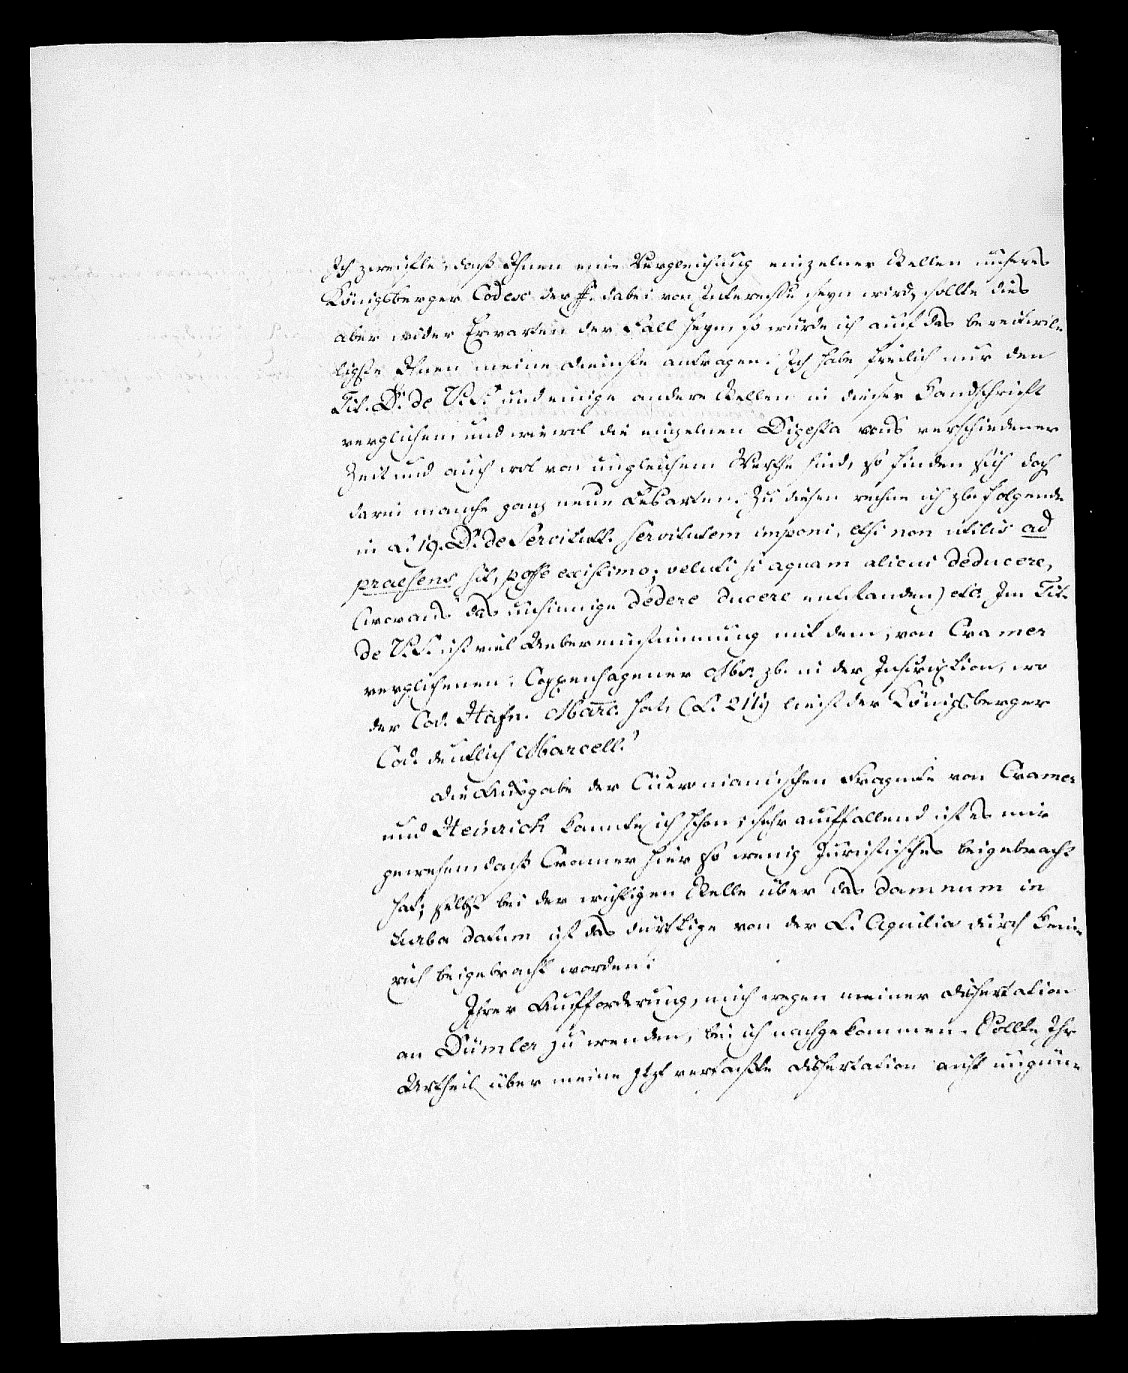 Ich zweifle, daß Ihnen eine Vergleichung einzelner Stellen unseres
Königsberger Codex der ff. dabei von Interesse seyn wird, sollte dies
aber wider Erwarten der Fall seyn, so würde ich auf das bereitwil-
ligste Ihnen meine Dienste antragen. Ich habe freilich nur den
Tit. D. de V. S. und einige andere Stellen in dieser Handschrift
verglichen, und wiewol die einzelnen Digesta aus verschiedener
Zeit und auch wol von ungleichem Werthe sind, so finden sich doch
darin manche ganz neue Lesarten. Zu diesen rechne ich zb. folgende
in L. 19. D. de Servitutt. servitutem imponi, etsi non utilis ad
praesens sit, posse existimo; veluti si aquam alicui deducere,
(woraus das unsinnige dedere ducere entstanden) etc. Im Tit.
de V. S. ist viel Uebereinstimmung mit dem, von Cramer
verglichenen, Coppenhagener Mbr. zb. in der Inscription, wo
der Cod. Hafn. Marc. hat, (L. 211) liest der Königsberger
Cod. deutlich Marcell.
Die Ausgabe der Ciceronianischen Fragmte von Cramer
und Heinrich kannte ich schon; sehr auffallend ist es mir
gewesen daß Cramer hier so wenig Juristisches beigebracht
hat; selbst bei der wichtigen Stelle über das damnum in
turba datum ist das dürftige von der L. Aquilia durch Hein-
rich beigebracht worden.
Ihrer Aufforderung, mich wegen meiner Dissertation
an Dümler zu wenden, bin ich nachgekommen. Sollte Ihr
Urtheil über meine jtzt verfaßte Dissertation nicht ungün-